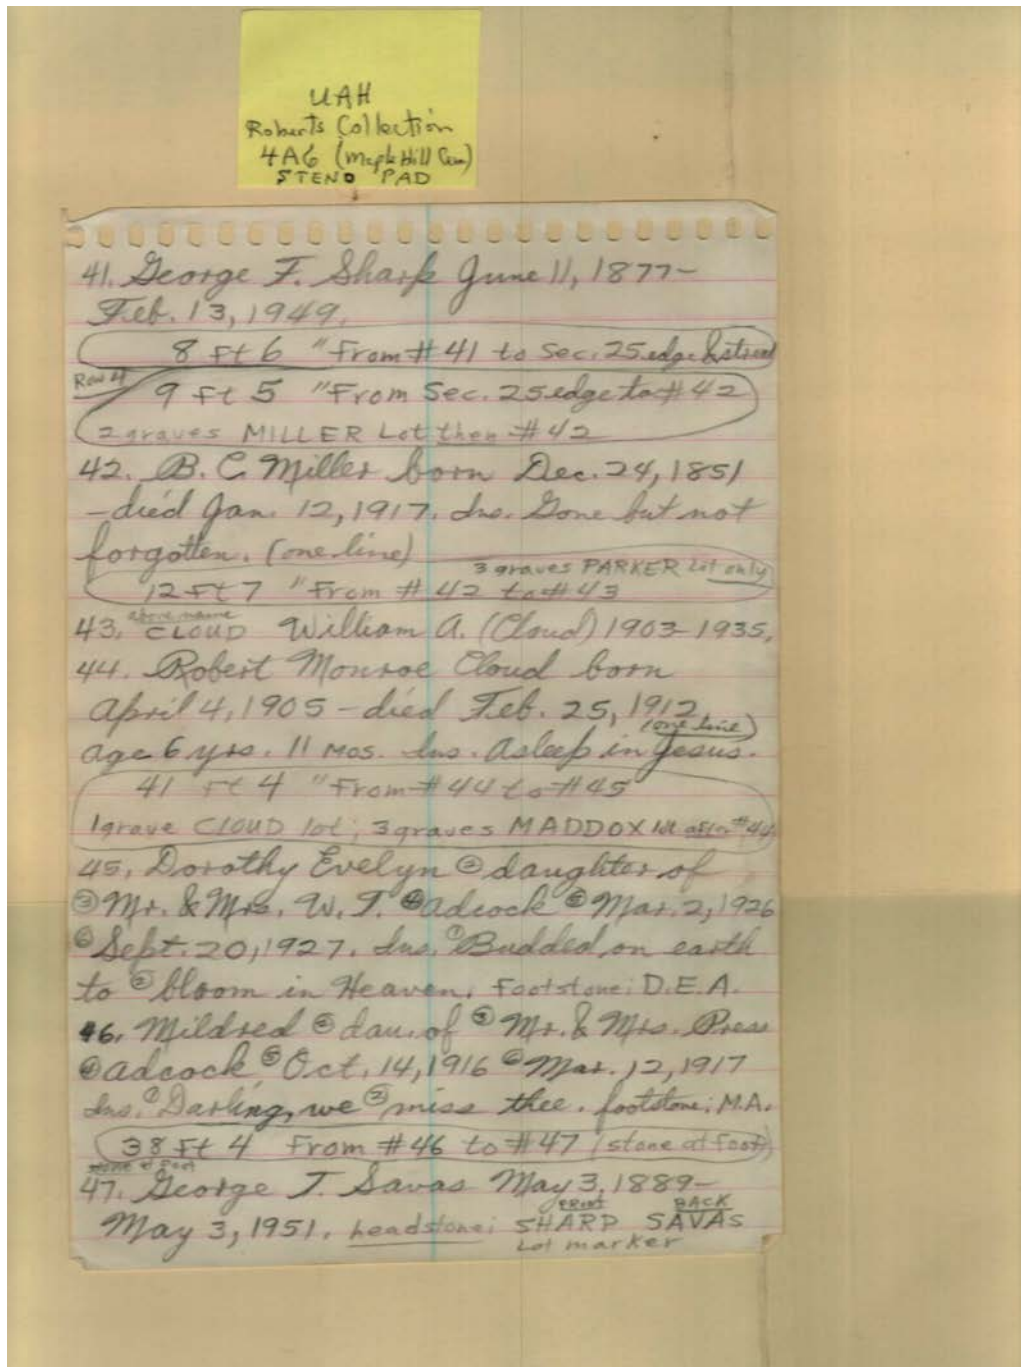 UAH
Roberts Collection
4A6 (Maple Hill Cem)
STENO PAD
41. George F. Sharp June 11, 1877-
Feb. 13, 1949.
8 Ft 6 " From # 41 to Sec. 25 edge & street
Row 4
9 Ft 5 " From Sec. 25 edge to # 42
2 graves MILLER Lot then # 42
42. B. C. Miller born Dec. 24, 1851
-died Jan. 12, 1917. Ins. Gone but not
forgotten. (one line)
3 graves PARKER Lot only
12 Ft 7 " From # 42 to # 43
above name
43. CLOUD William A. (Cloud) 1903-1935.
44. Robert Monroe Cloud born
April 4, 1905 - died Feb. 25, 1912,
(one line)
age 6 yrs. 11 mos. Ins. Asleep in Jesus.
41 Ft 4 " From # 44 to # 45
1 grave CLOUD lot; 3 graves MADDOX lot after # 44
45. Dorothy Evelyn ② daughter of
③ Mr. & Mrs. W. T. ④ Adcock ⑤ Mar. 2, 1926
⑥ Sept. 20, 1927. Ins. ① Budded on earth
to ② bloom in Heaven. Footstone: D.E.A.
46. Mildred ② dau. of ③ Mr. & Mrs. Press
④ Adcock ⑤ Oct. 14, 1916 ⑥ Mar. 12, 1917
Ins. ① Darling, we ② miss thee. footstone: M.A.
38 Ft 4 From # 46 to # 47 (stone at foot)
stone at foot
47. George T. Savas May 3, 1889-
FRONT BACK
May 3, 1951. headstone: SHARP SAVAS
Lot marker